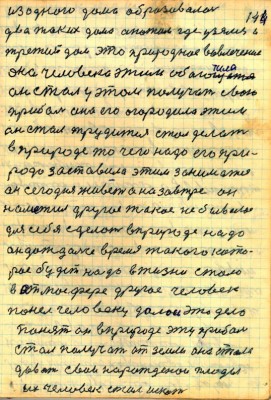 из одного дома образовалось 144
два таких дома а потом где взялись и
третий дом это природное явление
она человека этим обогатила
он стал у этом получать свою
прибыль она его огородила этим
он стал трудится стал делать
в природе то чего надо его при-
рода заставила этим заниматся
он сегодня живет а на завтре он
наметил другое такое не бывалое
для себя сделать в природе надо
он дождался время такого кото-
рое будит надо в жизни стало
в атмосфере другое человек
понел человеку дали это дело
понят он в природе эту прибыл
стал получат от земли она стала
давать свои нарожденои плоды
их человек стал искат